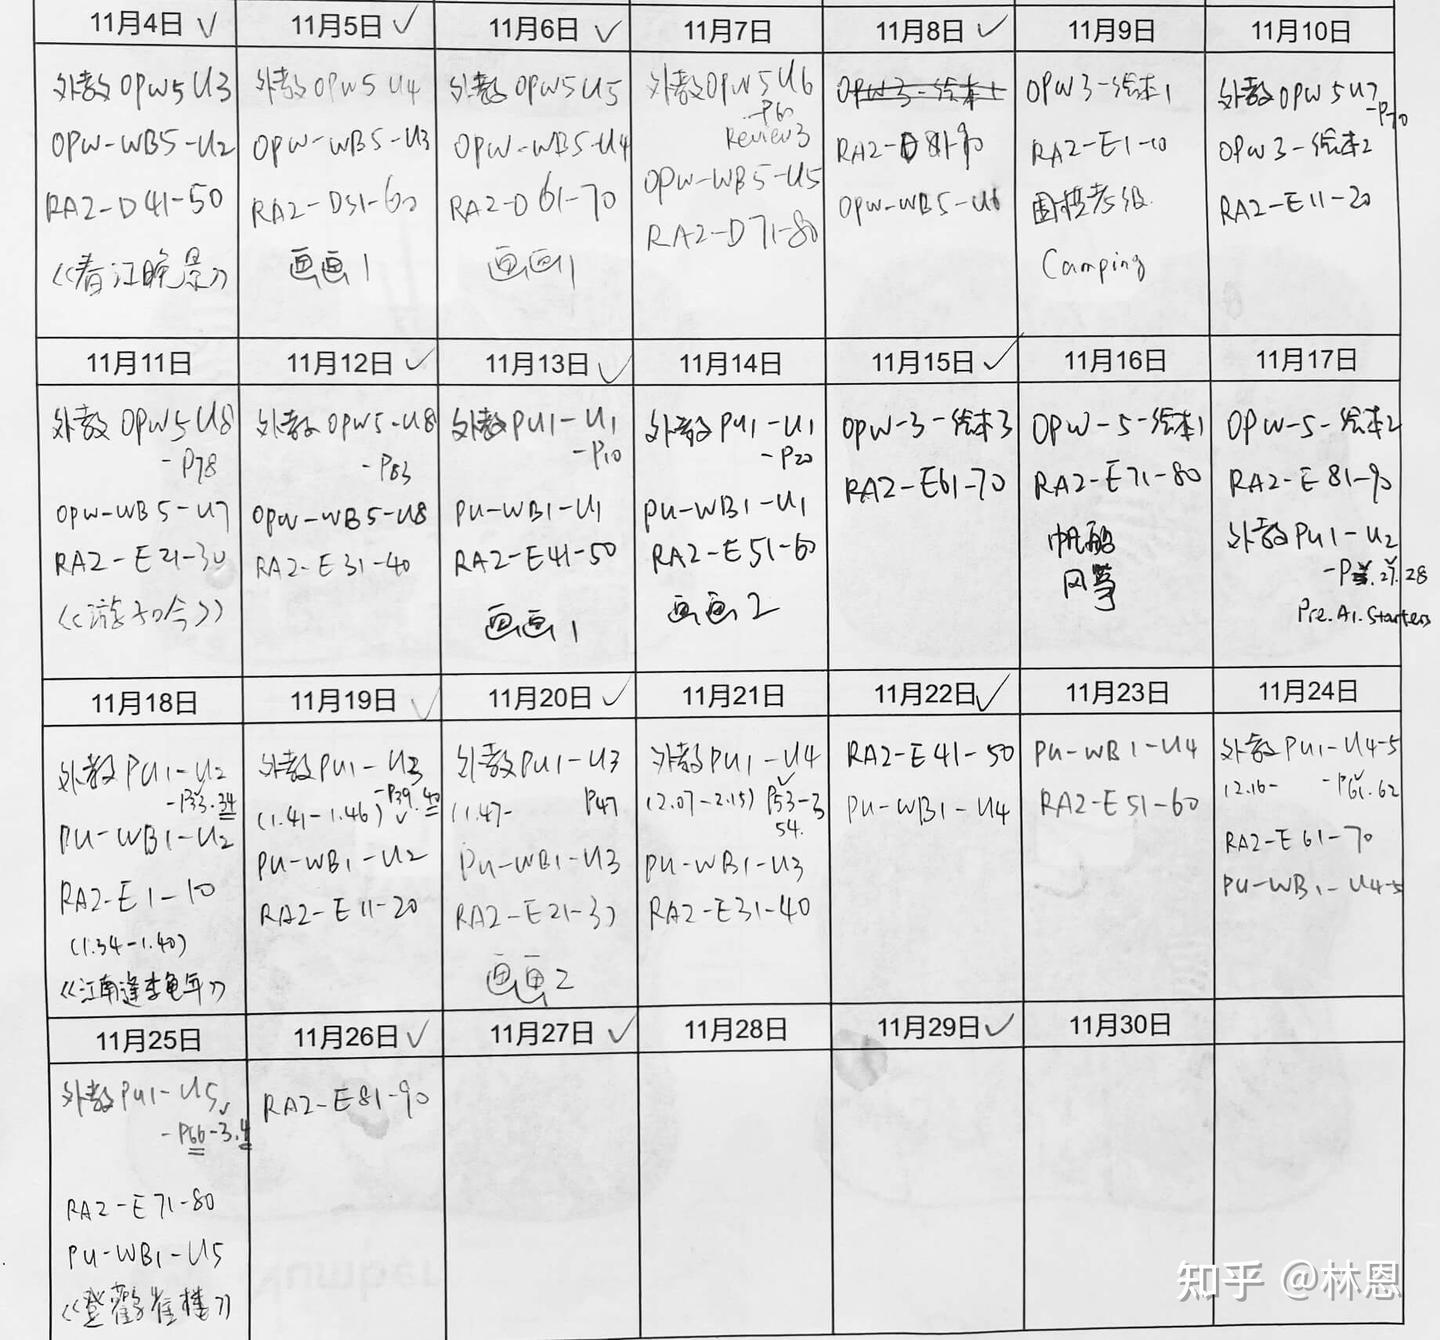 11月4日 ✓
外教 OPW5 U3
OPW-WB5-U2
RA2-D41-50
《春江晚景》
11月5日 ✓
外教 OPW5 U4
OPW-WB5-U3
RA2-D51-60
画画1
11月6日 ✓
外教 OPW5 U5
OPW-WB5-U4
RA2-D 61-70
画画1
11月7日
外教 OPW5 U6
-P60
Review3
OPW-WB5-U5
RA2-D71-80
11月8日 ✓
OPW3-绘本1
RA2-D 81-90
OPW-WB5-U6
11月9日
OPW3-绘本1
RA2-E1-10
围棋考级
Camping
11月10日
外教 OPW5 U7
-P70
OPW3-绘本2
RA2-E11-20
11月11日
外教 OPW5 U8
-P78
OPW-WB5-U7
RA2-E21-30
《游子吟》
11月12日 ✓
外教 OPW5-U8
-P83
OPW-WB5-U8
RA2-E31-40
11月13日 ✓
外教 PU1-U1
-P10
PU-WB1-U1
RA2-E41-50
画画1
11月14日
外教 PU1-U1
-P20
PU-WB1-U1
RA2-E51-60
画画2
11月15日 ✓
OPW-3-绘本3
RA2-E61-70
11月16日
OPW-5-绘本1
RA2-E71-80
帆船
风筝
11月17日
OPW-5-绘本2
RA2-E 81-90
外教 PU1-U2
27.28
Pre.A1.Starters
11月18日
外教 PU1-U2
-P33.34
PU-WB1-U2
RA2-E1-10
(1.34-1.40)
《江南逢李龟年》
11月19日 ✓
外教 PU1-U3
-P39.40
(1.41-1.46) ✓
PU-WB1-U2
RA2-E11-20
11月20日 ✓
外教 PU1-U3
(1.47- P47
PU-WB1-U3
RA2-E21-30
画画2
11月21日
外教 PU1-U4
(2.07-2.15) P53-3
54.
PU-WB1-U3
RA2-E31-40
11月22日 ✓
RA2-E41-50
PU-WB1-U4
11月23日
PU-WB1-U4
RA2-E51-60
11月24日
外教 PU1-U4-5
(2.16- -P61.62
RA2-E61-70
PU-WB1-U4-5
11月25日
外教 PU1-U5
-P66-3.4
RA2-E71-80
PU-WB1-U5
《登鹳雀楼》
11月26日 ✓
RA2-E81-90
11月27日 ✓
11月28日
11月29日 ✓
11月30日
知乎 @林恩